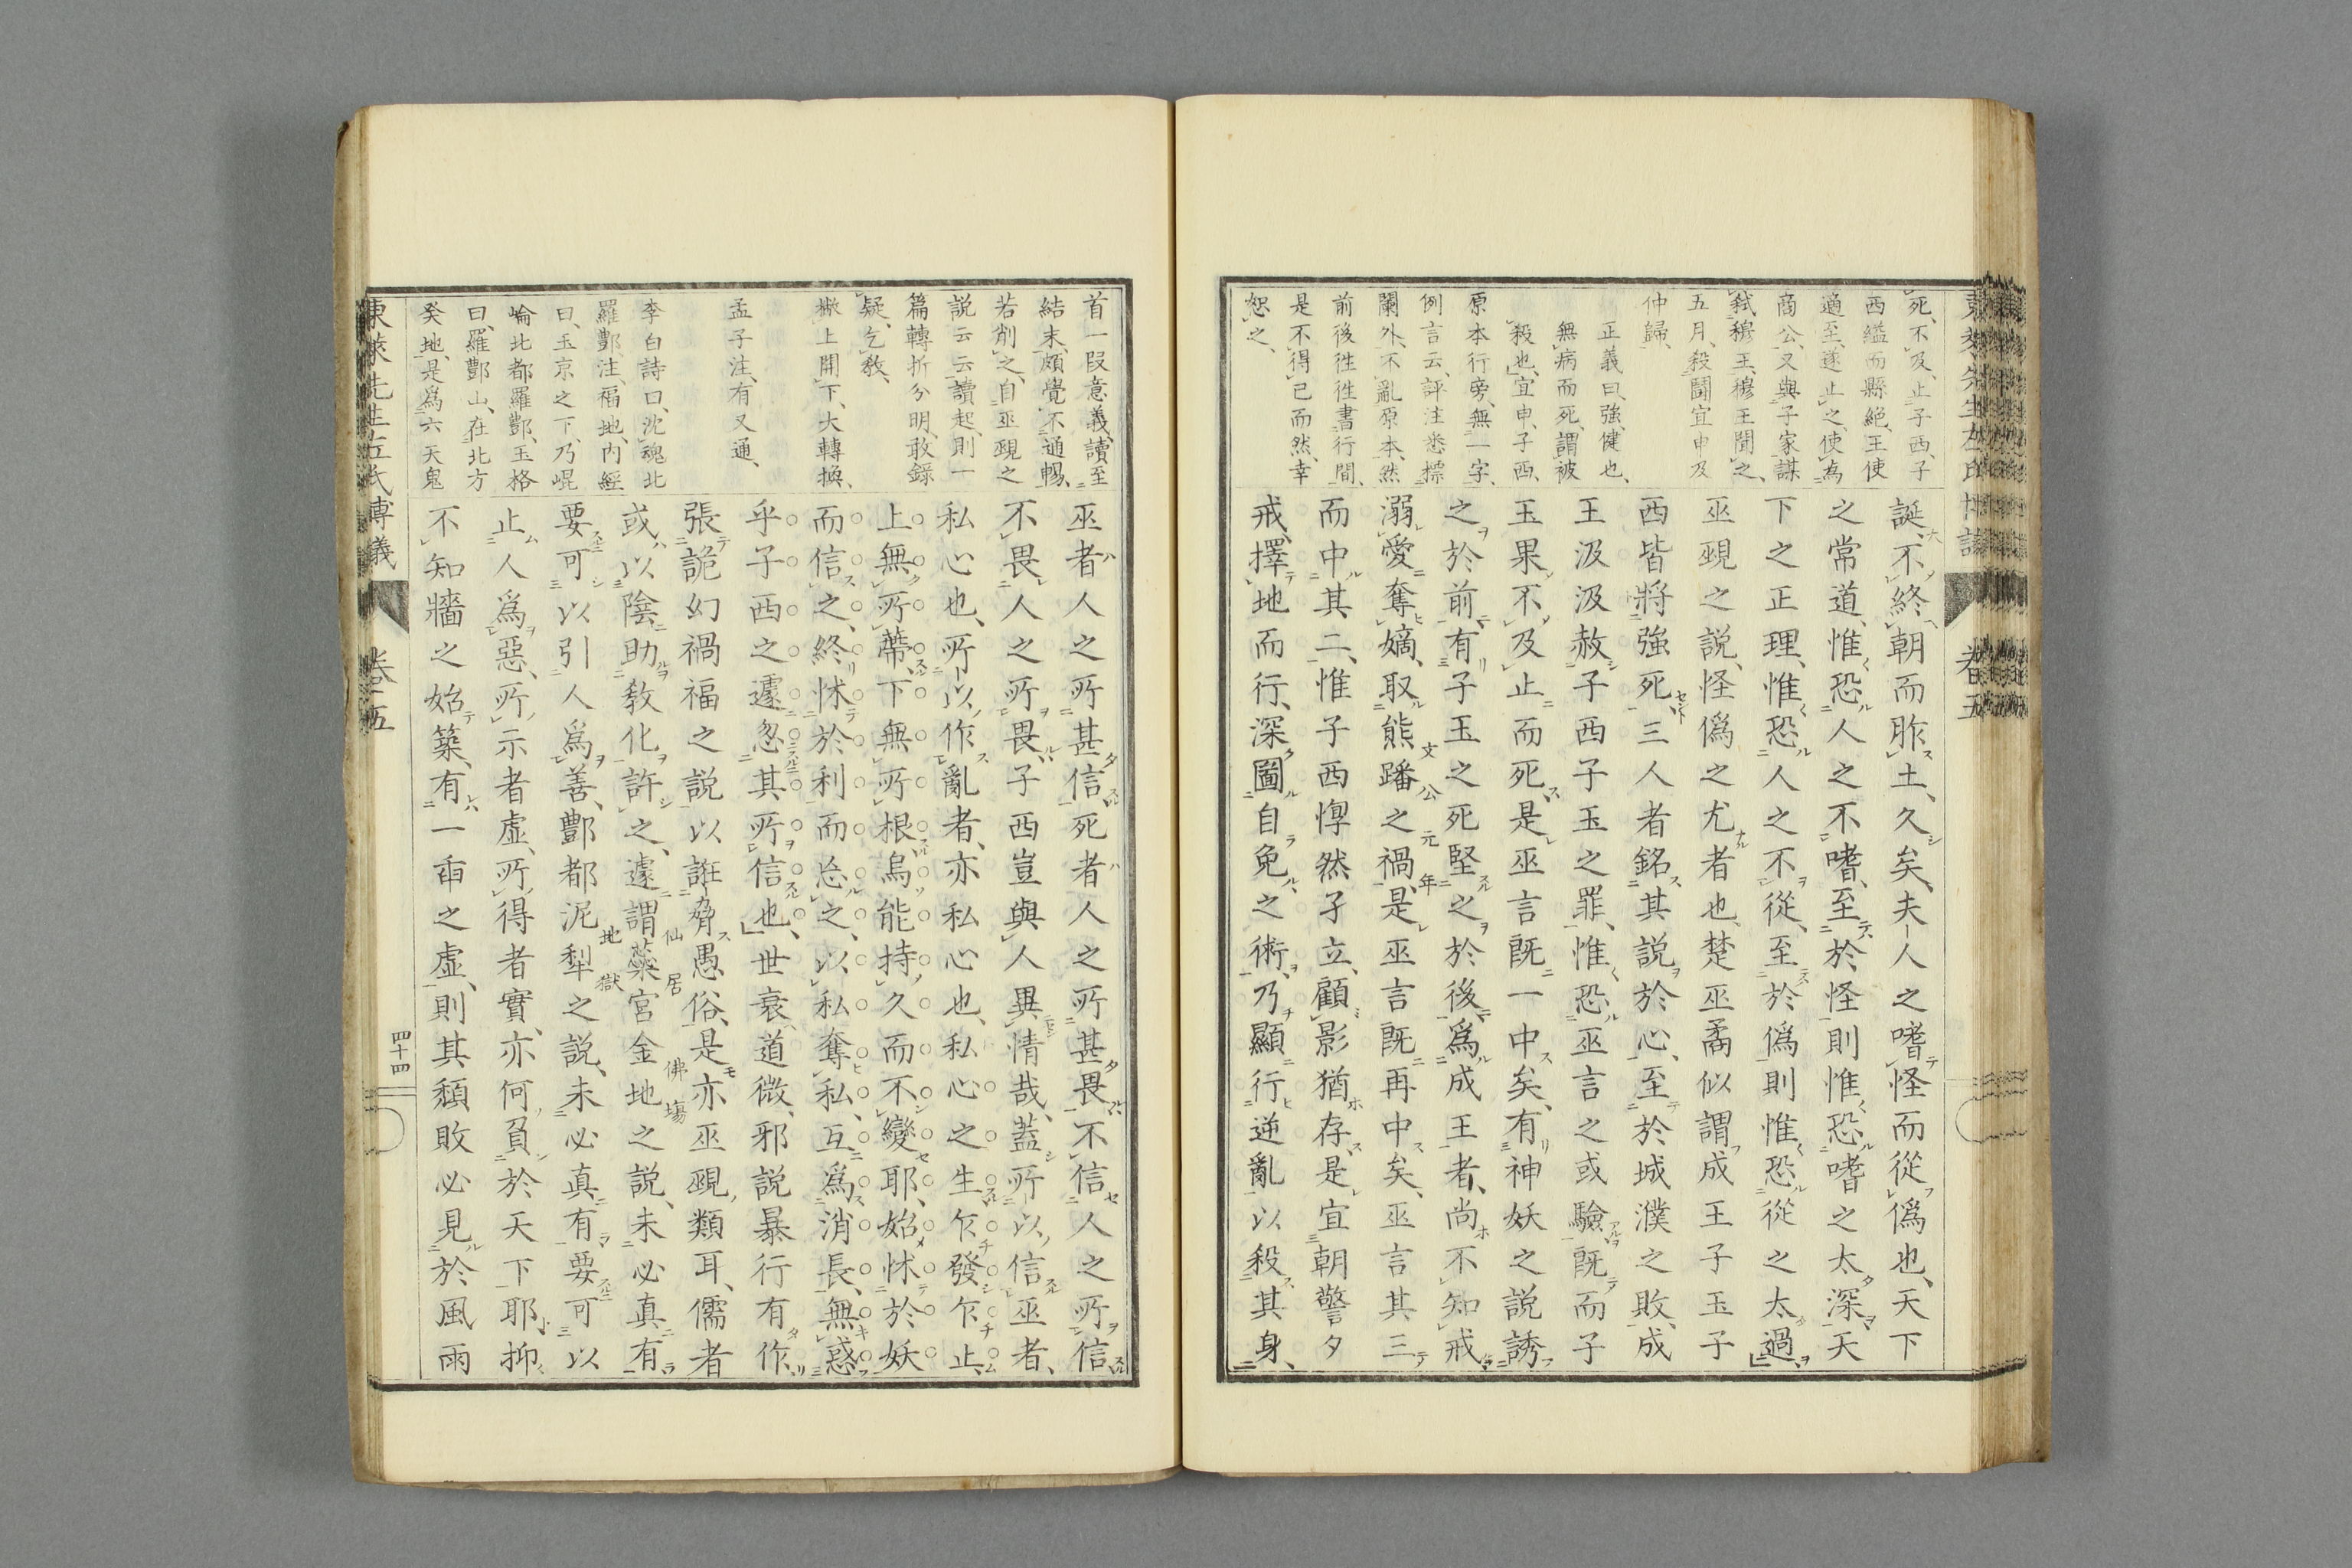 東萊先生左氏博議 卷五
死、不及、止子西、子
西縊而縣絶、王使
適至、遂止之、使爲
商公、又與子家謀
弑穆王、穆王聞之、
五月、殺鬭宜申及
仲歸、
正義曰、強、健也、
無病而死、謂被
殺也、宜申、子西、
原本行旁、無一字、
例言云、評注悉標
闌外、不亂原本、然
前後徃徃書行間、
是不得已而然、幸
恕之、
誕、不終、朝而胙土、久矣、夫人之嗜怪而從僞也、天下
之常道、惟恐人之不嗜、至於怪則惟恐嗜之太深、天
下之正理、惟恐人之不從、至於僞則惟恐從之太過、
巫覡之説、怪僞之尤者也、楚巫矞似謂成王子玉子
西皆將強死、三人者銘其説於心、至於城濮之敗、成
王汲汲赦子西子玉之罪、惟恐巫言之或驗、既而子
玉果不及止而死、是巫言既一中矣、有神妖之説誘
之於前、有子玉之死堅之於後、爲成王者、尚不知戒、
溺愛奪嫡、取熊蹯之禍、是巫言既再中矣、巫言其三
文公元年
而中其二、惟子西惸然孑立、顧影猶存、是宜朝警夕
戒、擇地而行、深圖自免之術、乃顯行逆亂以殺其身、
首一段意義、讀至
結末、頗覺不通暢、
若削之、自巫覡之
説云云讀起、則一
篇轉折分明、敢錄
疑、乞教、
撇上開下、大轉換、
孟子注、有又通、
李白詩曰、沈魂北
羅酆、注、福地、内經
曰、玉京之下、乃崐
崘北都羅酆、玉格
曰、羅酆山、在北方
癸地、是爲六天鬼
巫者人之所甚信、死者人之所甚畏、不信人之所信、
不畏人之所畏、子西豈與人異情哉、蓋所以信巫者、
私心也、所以作亂者、亦私心也、私心之生、乍發乍止、
上無所蔕、下無所根、烏能持久而不變耶、始怵於妖
而信之、終怵於利而忘之、以私奪私、互爲消長、無惑
乎子西之遽忽其所信也、世衰道微、邪説暴行有作、
張詭幻禍福之説以誑脅愚俗、是亦巫覡類耳、儒者
或以陰助敎化許之、遽謂蘂宮金地之説、未必真有
仙居 佛塲
要可以引人爲善、酆都泥犁之説、未必真有要可以
地獄
止人爲惡、所示者虛、所得者實、亦何負於天下耶、抑
不知牆之始築、有一臿之虛、則其頽敗必見於風雨
東萊先生左氏博議 卷五 四十四